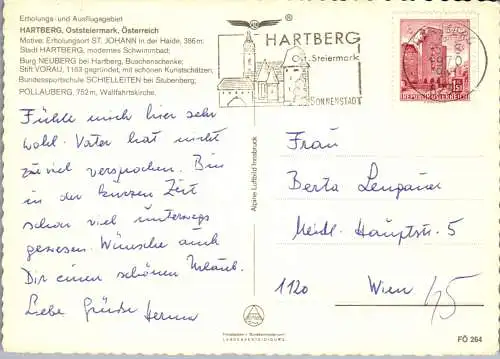 Erholungs- und Ausflugsgebiet
HARTBERG, Oststeiermark, Österreich
Motive: Erholungsort ST. JOHANN in der Haide, 386m.
Stadt HARTBERG, modernes Schwimmbad;
Burg NEUBERG bei Hartberg, Buschenschenke;
Stift VORAU, 1163 gegründet, mit schönen Kunstschätzen;
Bundessportschule SCHIELLEITEN bei Stubenberg;
PÖLLAUBERG, 752 m, Wallfahrtskirche.
HARTBERG
Ost-Steiermark
SONNENSTADT
REPUBLIK ÖSTERREICH
Fühle mich hier sehr
wohl. Vater hat nicht
zuviel versprochen. Bin
in der kurzen Zeit
schon viel unterwegs
gewesen. Wünsche auch
Dir einen schönen Urlaub.
Liebe Grüße
Alpine Luftbild Innsbruck
Frau
Berta
Meidl. Hauptstr. 5
1120 Wien
FÖ 264